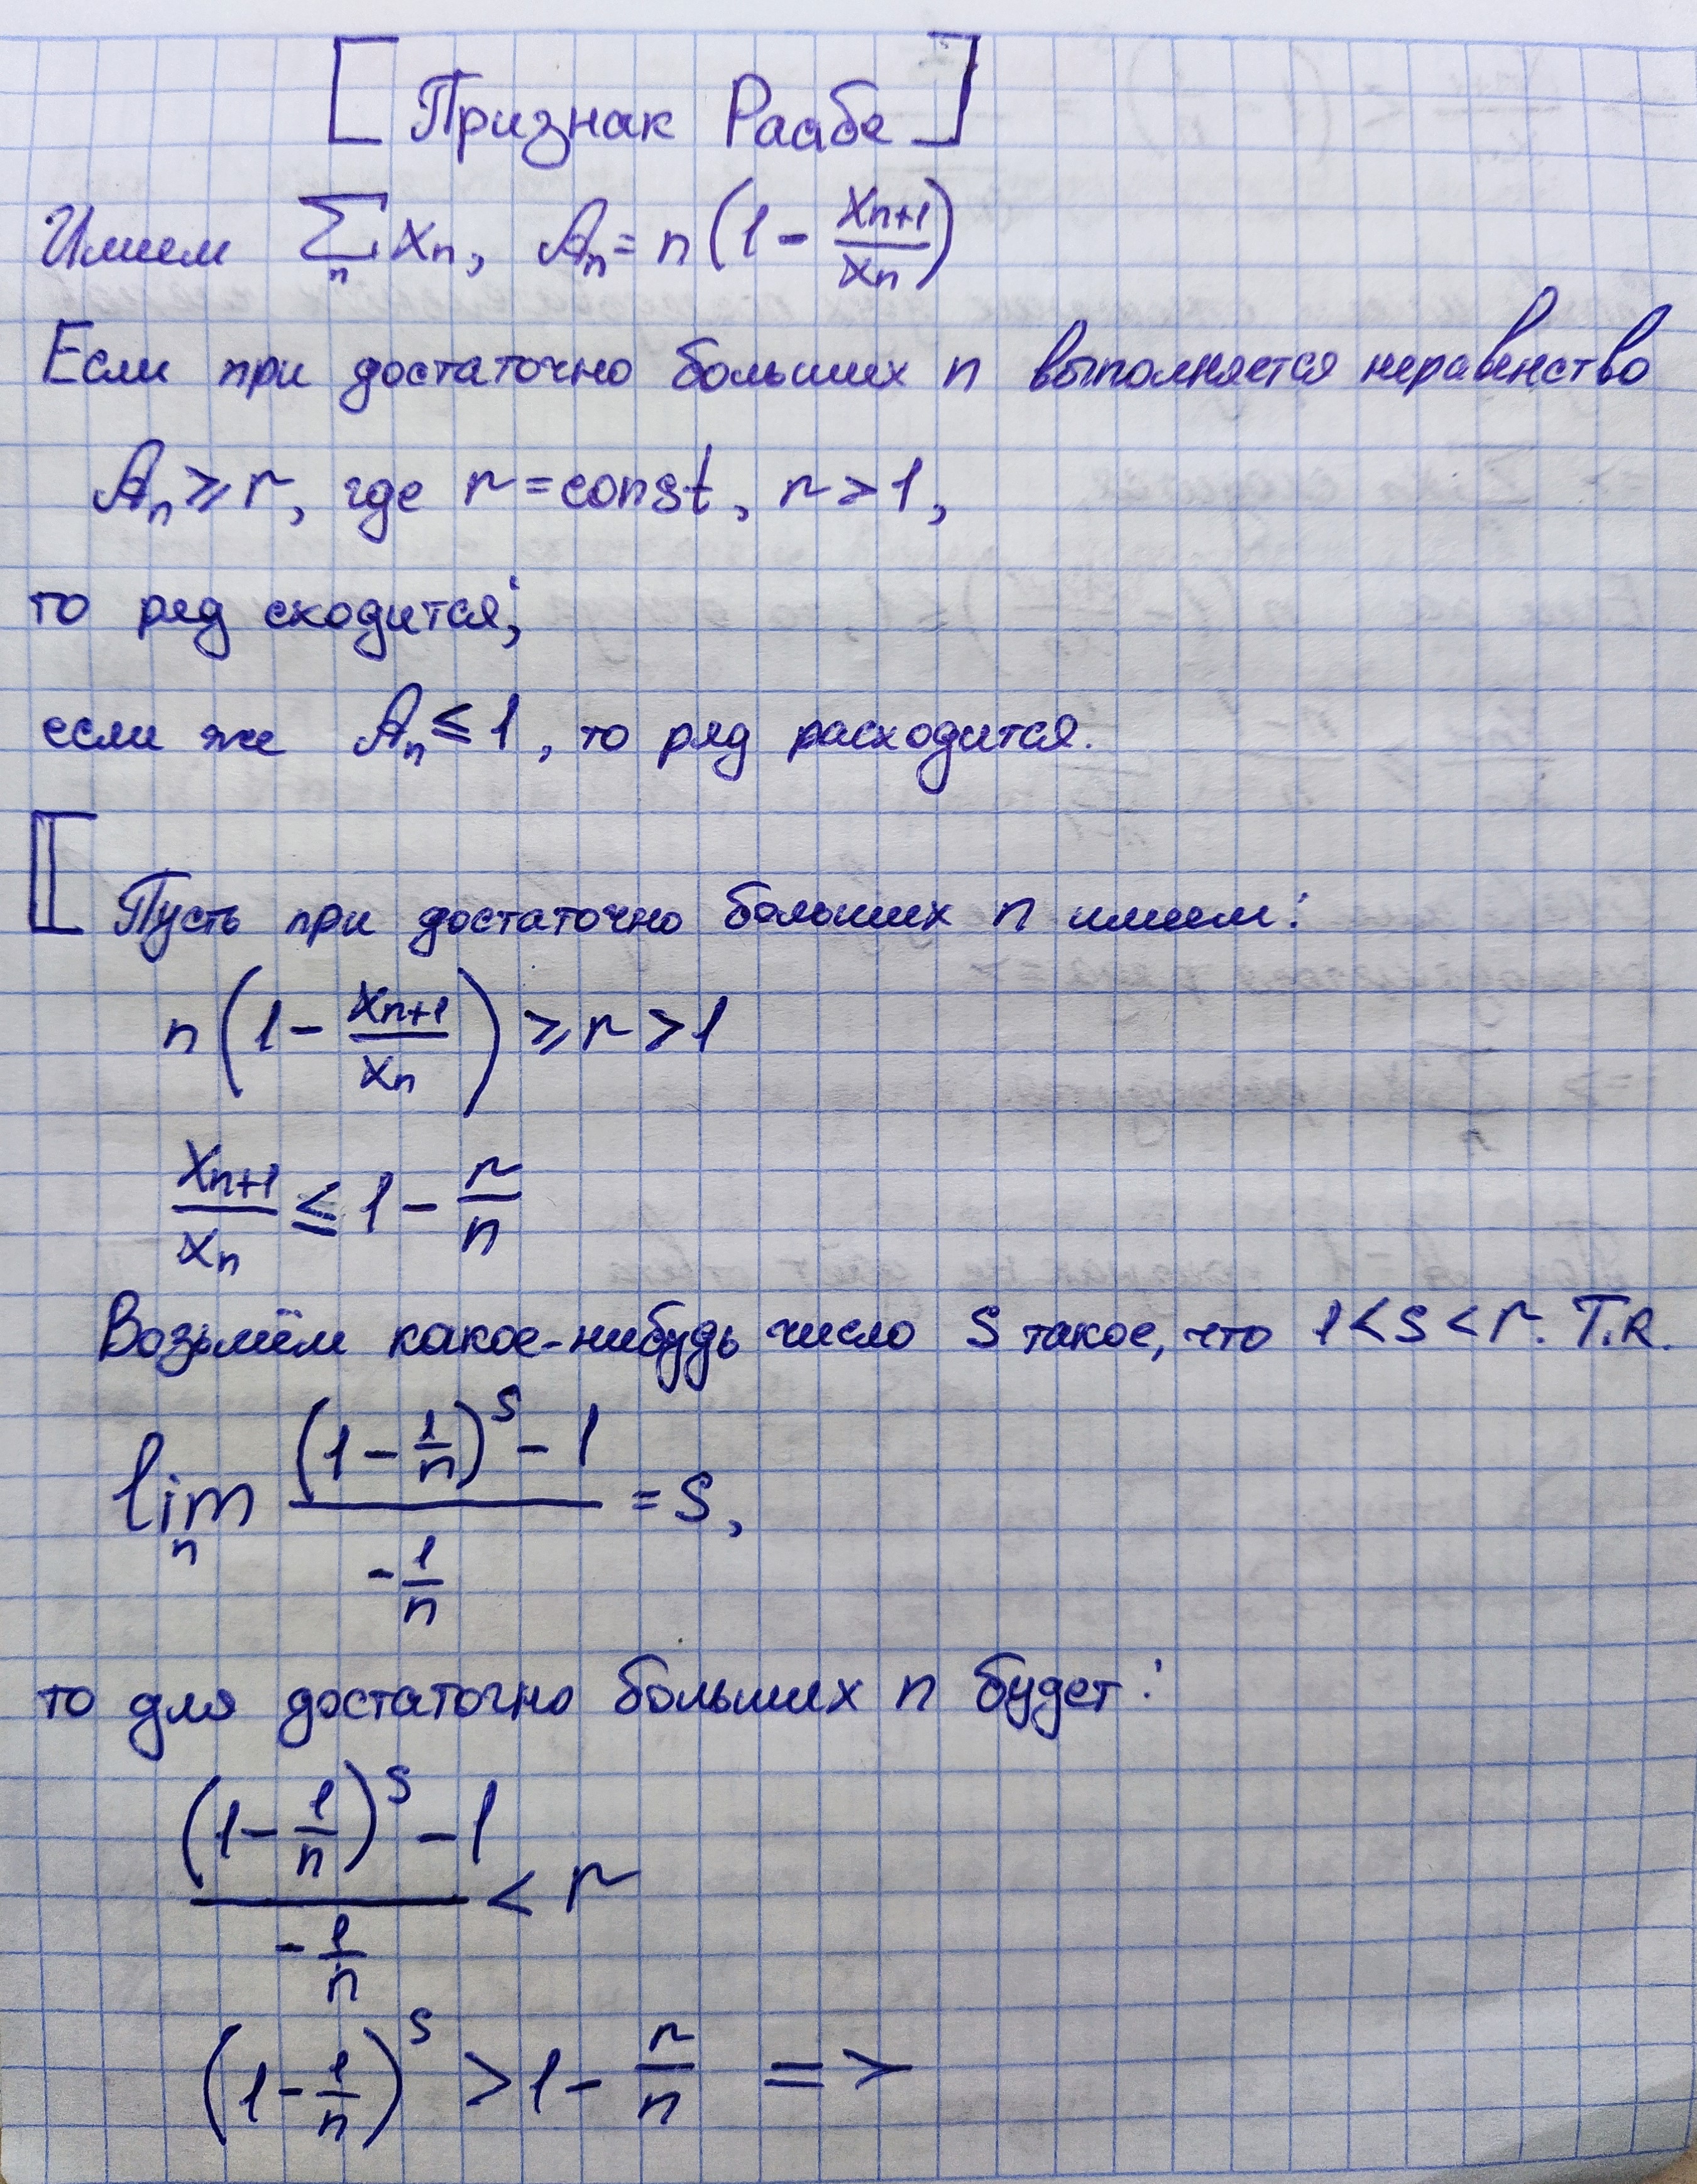 [Признак Раабе]
Имеем ∑_n x_n, 𝒜_n = n(1 - x_{n+1}/x_n)
Если при достаточно больших n выполняется неравенство
𝒜_n ⩾ r, где r = const, r > 1,
то ряд сходится;
если же 𝒜_n ≤ 1, то ряд расходится.
[Пусть при достаточно больших n имеем:
n(1 - x_{n+1}/x_n) ⩾ r > 1
x_{n+1}/x_n ≤ 1 - r/n
Возьмём какое-нибудь число s такое, что 1 < s < r. Т.к.
lim_n ((1 - 1/n)^s - 1)/(-1/n) = s,
то для достаточно больших n будет:
((1 - 1/n)^s - 1)/(-1/n) < r
(1 - 1/n)^s > 1 - r/n =>